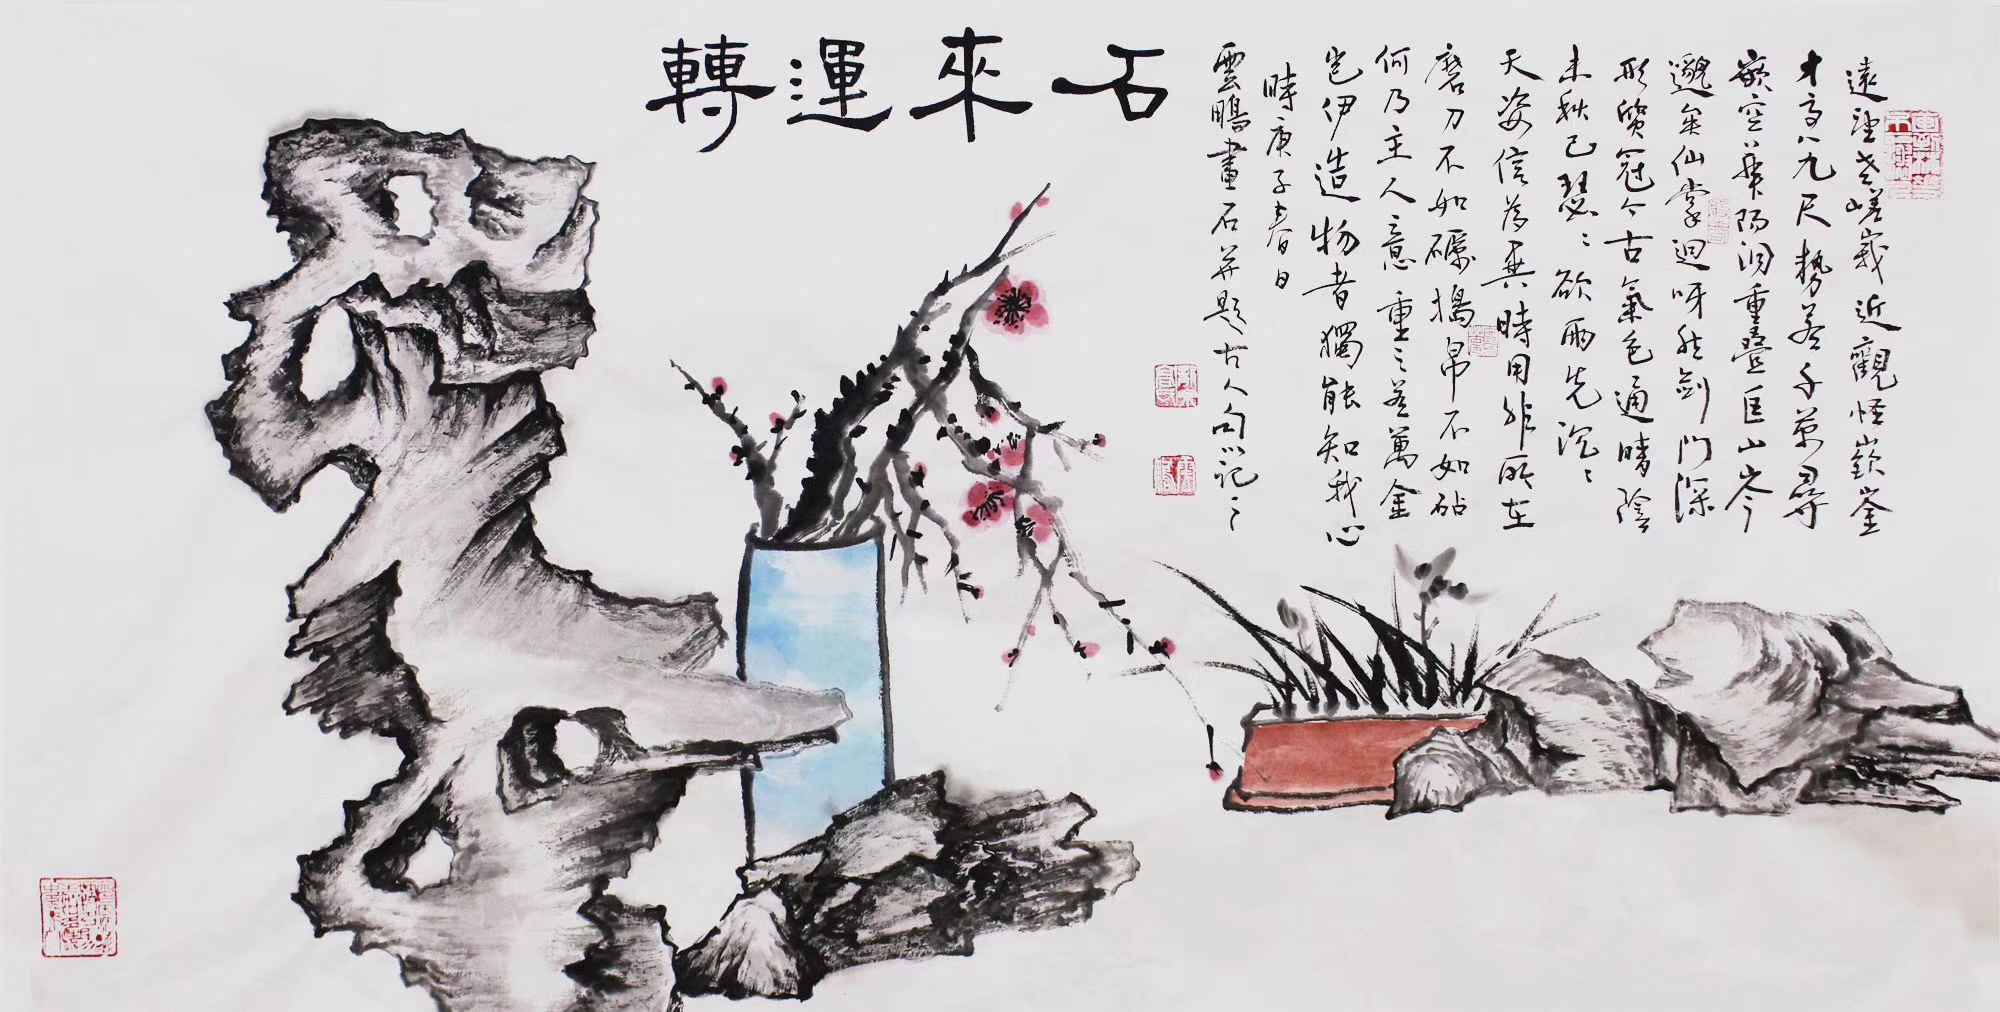 石來運轉
遠望老嵯峨近觀怪嶔崟
才高八九尺勢若千萬尋
嵌空華陽洞重疊匡山岑
邈矣仙掌迥呀然劍門深
形質冠今古氣色通晴陰
未秋已瑟〻欲雨先沉〻
天姿信為異時用非所在
磨刀不如礪搗帛不如砧
何乃主人意重之若萬金
豈伊造物者獨能知我心
時庚子春日
雲鵬畫石並題古人句以記之